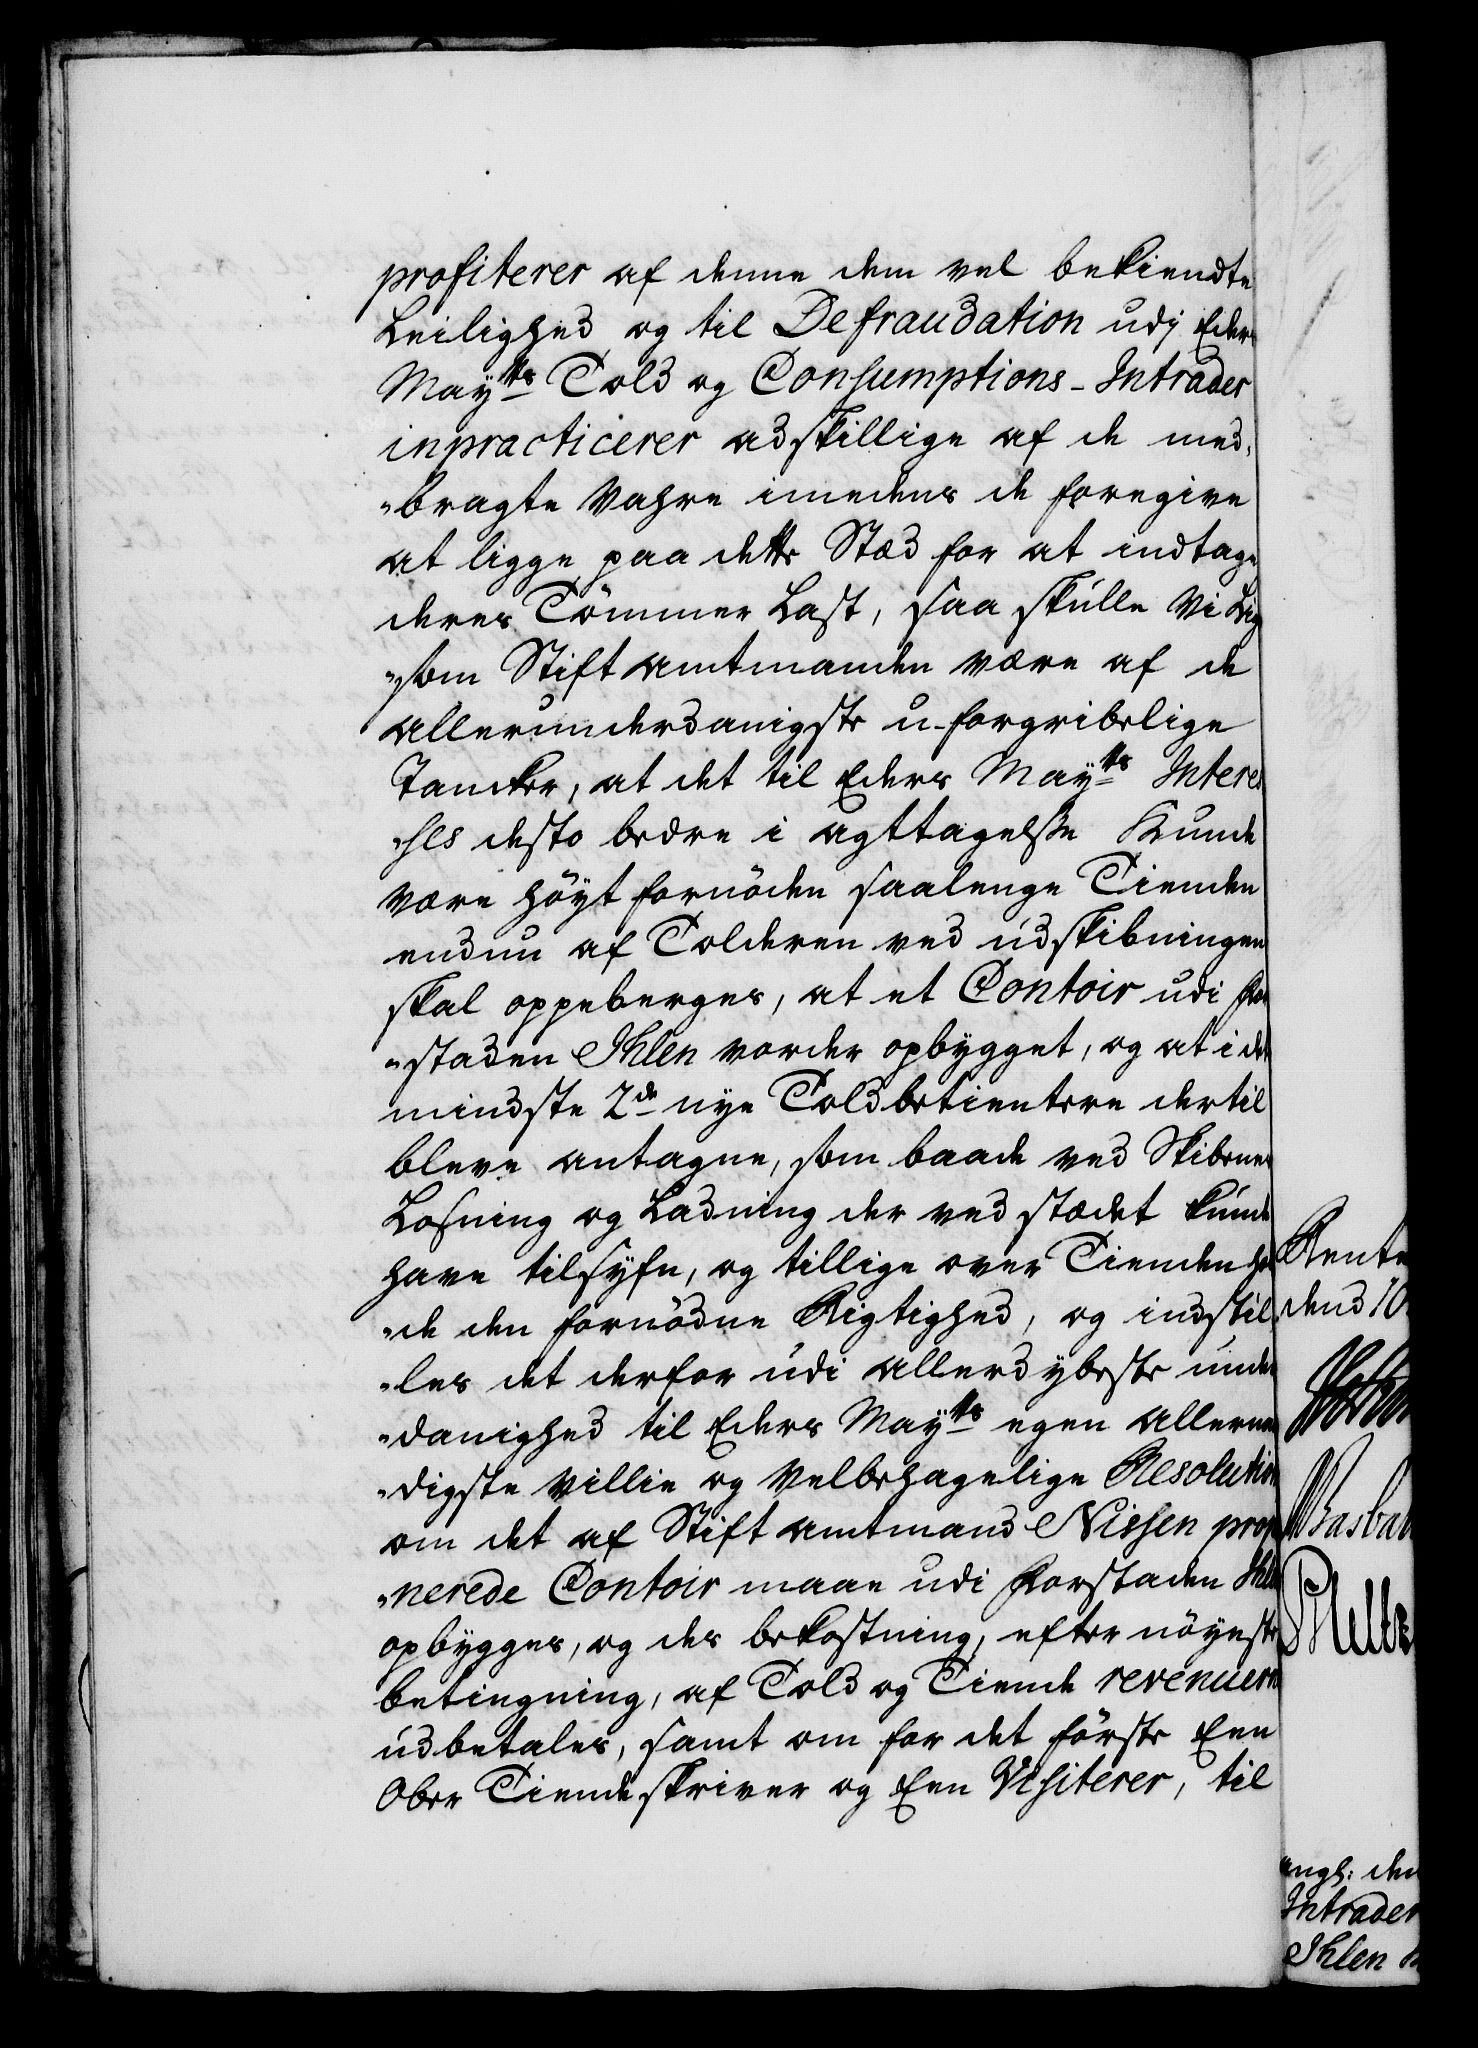 profiterer af denne dem vel bekiendte
Leilighed og til Defraudation udj Eders
Mayts Told og Consumptions-Intrader
inpracticerer adskillige af de med,
"bragte Vahre imedens de foregive
at ligge paa dette Stæd for at indtage
deres Tömmer Last, saa skulle Vi Lig
"som Stiftamtmanden være af de
allerunderdanigste u-forgribelige
Tancker, at det til Eders Mayts Interes
"ses desto bedre i agttagelsse Kunde
være höyt fornöden saalenge Tienden
endnu af Tolderen ved udskibningen
skal oppeberges, at et Contoir udi For
"staden Ihlen vorder opbygget, og at i det
mindste 2de nye Toldbetientere dertil
bleve antagne, som baade ved Skibenes
Losning og Ladning der ved stædet kunde
have tilsyfn, og tillige over Tienden hol
"de den fornödne Rigtighed, og indstil
"les det derfor udi allerdybeste under
"danighed til Eders Mayts egen allernaa
"digste villie og Velbehagelige Resolution
om det af Stiftamtmand Nissen propo
"nerede Contoir maae udi Forstaden Ihlen
opbygges, og des bekostning, efter nöyeste
betingning, af Told og Tiende revenuerne
udbetales, samt om for det förste Een
Ober Tiendeskriver og Een Visiterer, til
Rente
dend 10
angl: den
Intrader
Ihlen